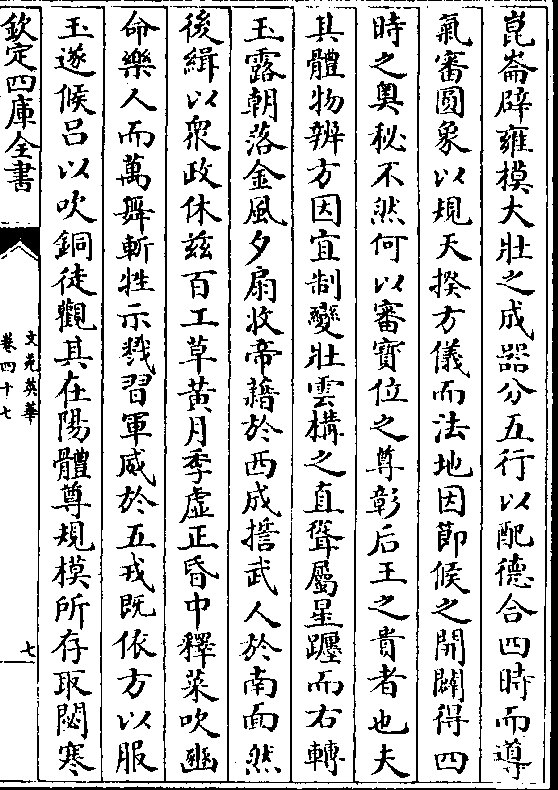 崑崙辟雍模大壯之成器分五行以配德合四時而導
氣審圓象以規天揆方儀而法地因節候之開闢得四
時之奧秘不然何以審寳位之尊彰后王之貴者也夫
其體物辨方因宜制變壯雲構之直聳屬星躔而右轉
玉露朝落金風夕扇收帝藉於西成擔武人於南面然
後緝以衆政休兹百工草黄月季虚正昏中釋菜吹豳
命樂人而萬舞斬牲示戮習軍威於五戎既依方以服
玉遂候吕以吹銅徒觀其在陽體尊規模所存取閟寒
欽定四庫全書
文苑英華
卷四十七
七